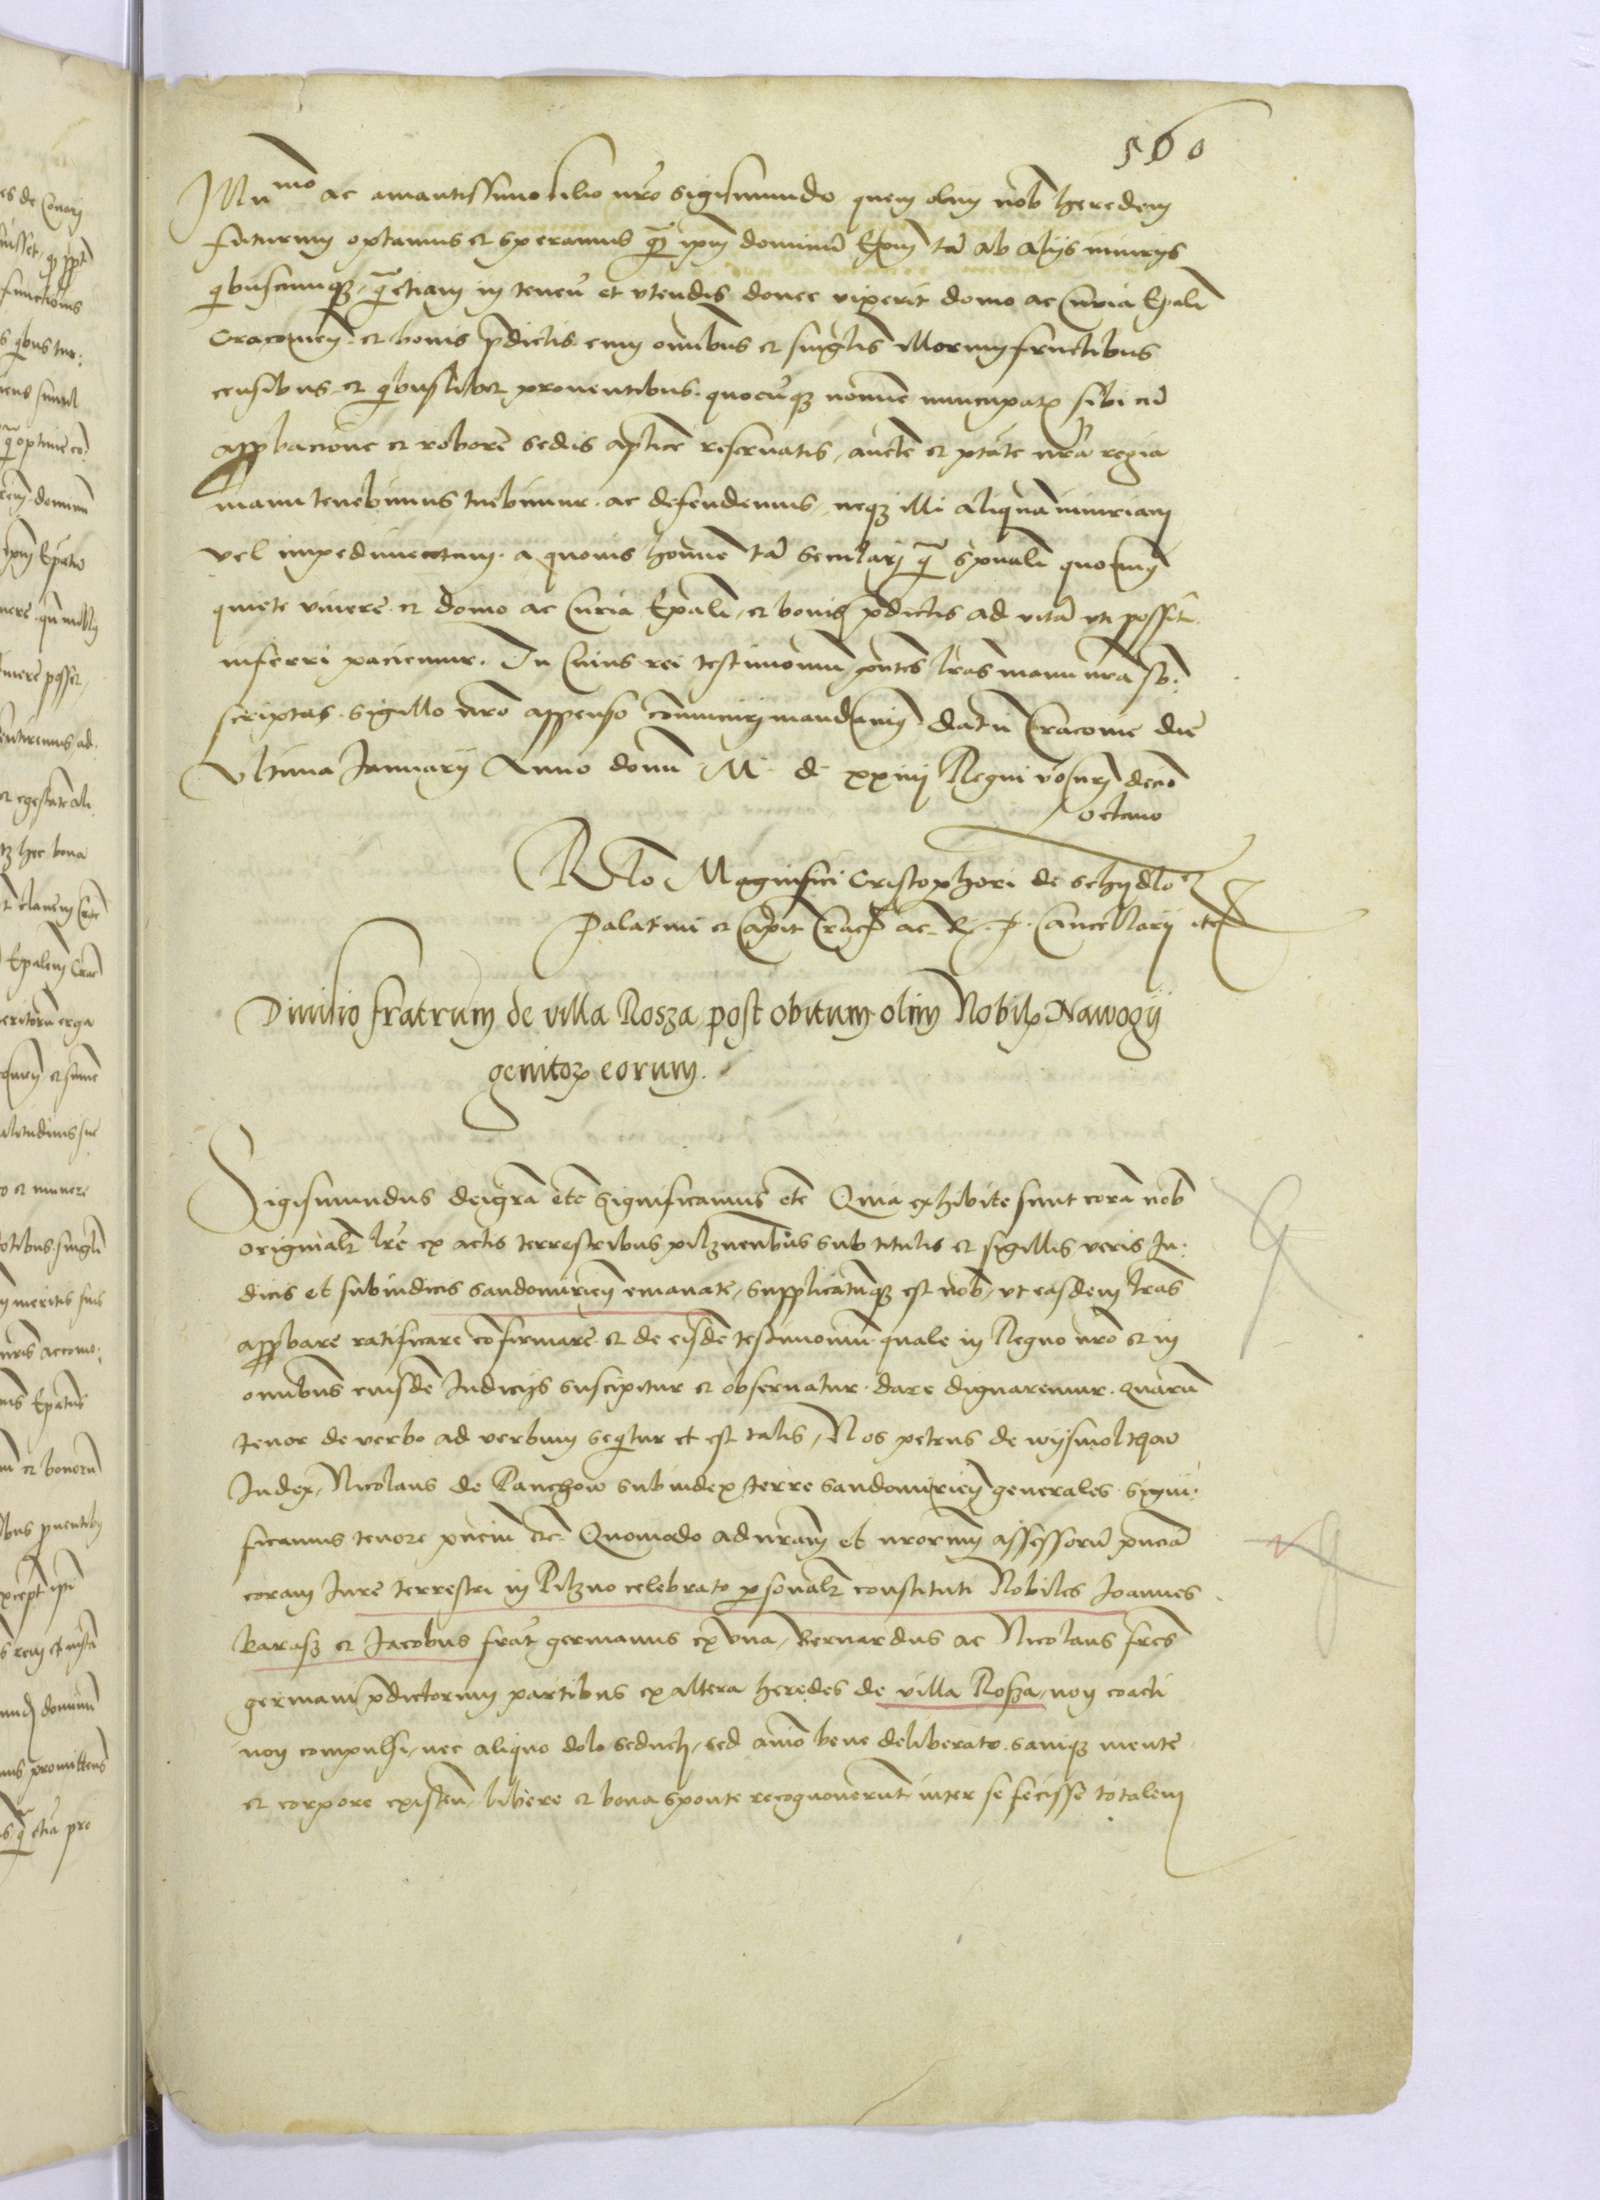 560
Illumo ac amantissimo filio nro Sigismundo quem olim nob heredem
futurum optamus et speramus q ipm dominu Epm ta ab alijs iniurijs
quibuscunqz, q etiam in tenen et utendis donec vixerit domo ac Curia Epali
Cracovien et bonis pdictis cum omnibus et singlis illorum fructibus
censibus et quibuslibet proventibus quocuqz nomine nuncupatis sibi cu
approbacione et robore sedis aplice reservatis, aucte et ptate nra regia
manu tenebimus tuebimur ac defendemus, neqz illi aliqua iniuriam
vel impedimentum a quovis homine ta seculari q spuali quominus
quiete vivere et domo ac Curia Epali, et bonis pdictis ad vita uti possit
inferri paciemur. In Cuius rei testimonium pntes lras manu nra sb:
scriptas sigillo nro appenso comuniri mandavimus datu Cracovie die
Ultima Januarij Anno domi M d xxiiij Regni vo nri decio
octavo
Rlo Magnifici Cristophori de Schydlo
Palatini et Capit Crac ac R. P. Cancellarij etc
Divisio fratrum de villa Rosza post obitum olim Nobilis Nawogij
genitoris eorum.
Sigismundus dei gra etc Significamus etc Quia exhibite sunt cora nob
original lre ex actis terrestribus pilznensibus sub titulis et sigillis veris Ju:
dicis et subiudicis sandomirien emanate, supplicatumqz est nob, ut easdem lras
approbare ratificare confirmare et de eisde testimonium quale in Regno nro et in
omnibus eiusde Judicijs suscipitur et observatur dare dignaremur quaru
tenor de verbo ad verbum sequitur et est talis, Nos petrus de wijsmolthow
Judex, Nicolaus de Panchow subiudex terre sandomirien generales signi:
ficamus tenore pncium etc Quomodo ad nram et nrorum assessoru pncia
coram Jure terrestri in Pilzno celebrato psonalr constituti Nobiles Joannes
karasz et Jacobus frat germanus ex una, Bernardus ac Nicolaus fres
germani pdictorum partibus ex altera heredes de villa Rosza, non coacti
non compulsi, nec aliquo dolo seducti, sed aio bene deliberato saniqz mente
et corpore existen, libere et bona sponte recognoverunt inter se fecisse totalem